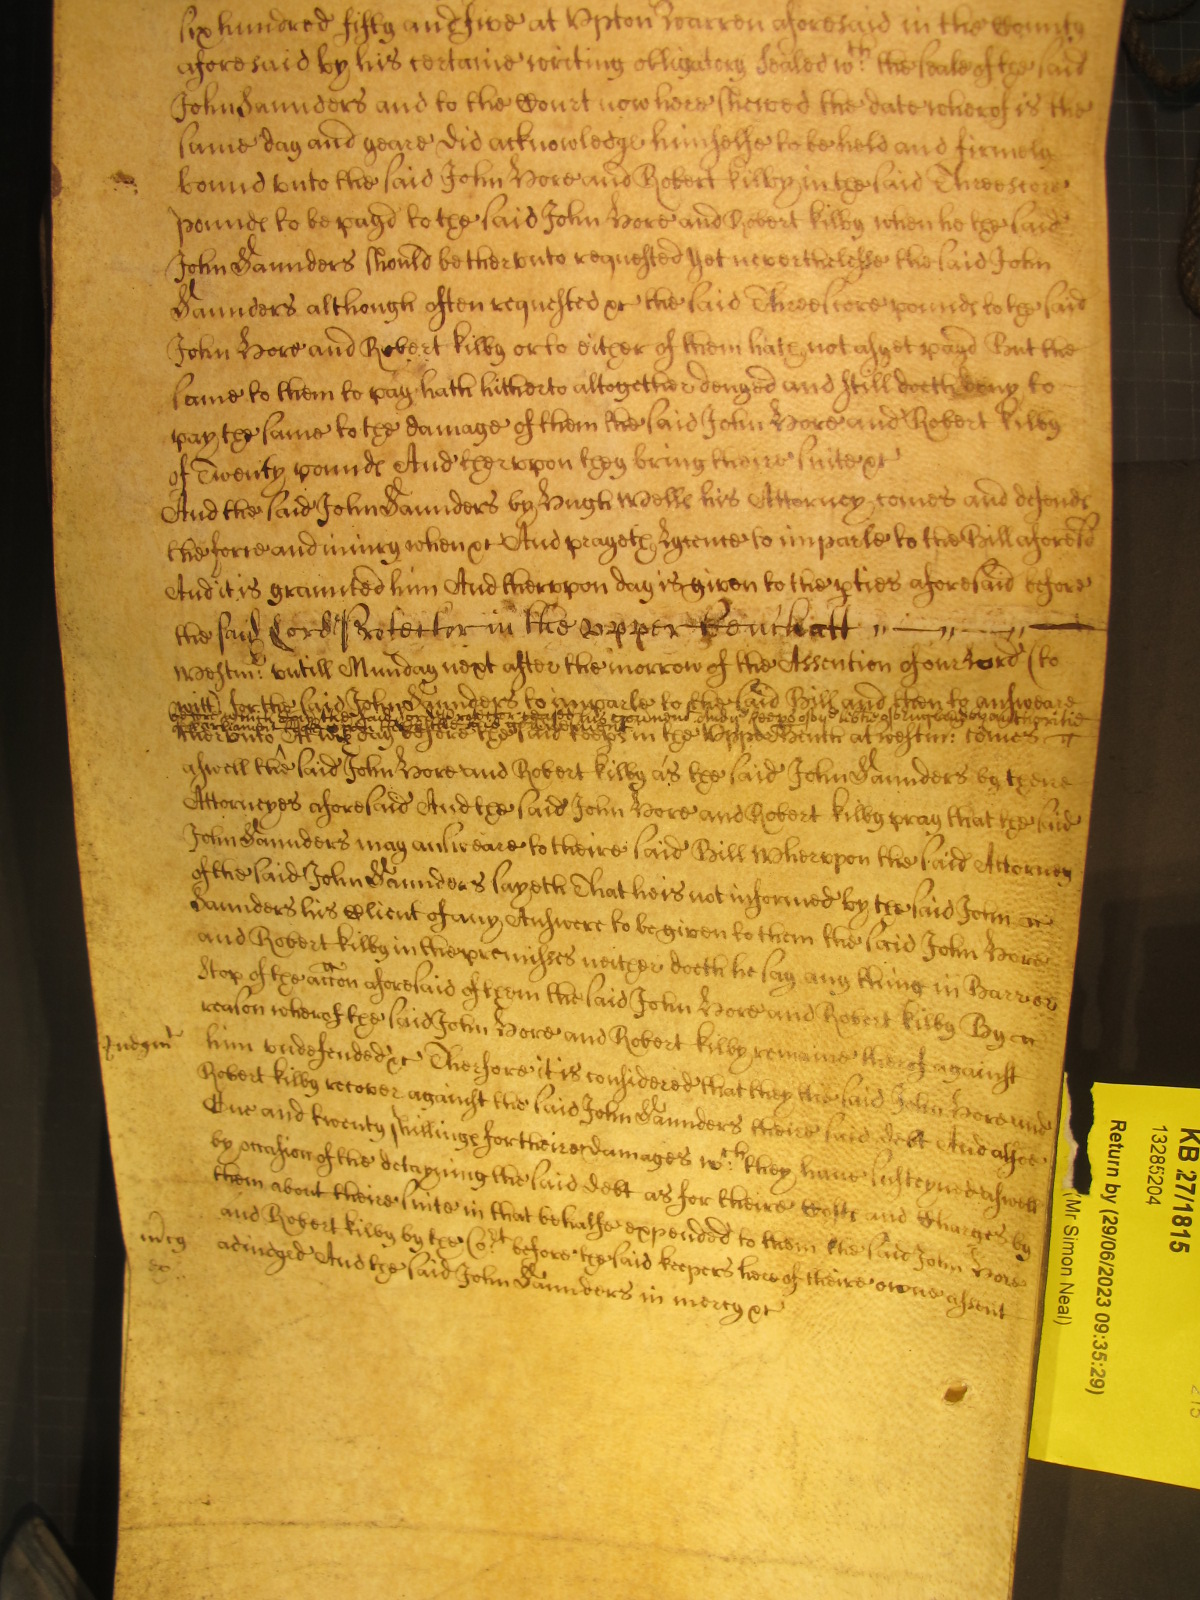 six hundred fifty and five at Upton Warren aforesaid in the County
aforesaid by his certaine writing obligatory Sealed wth. the seale of the said
John Saunders and to the Court now here shewed the date wherof is the
same day and yeare did acknowledge himselfe to be held and firmely
bound unto the said John Hore and Robert Kilby in the said Threescore
pounds to be payd to the said John Hore and Robert Kilby when he the said
John Saunders should be therunto requested Yet neverthelesse the said John
Saunders although often requested &c the said Threescore pounds to the said
John Hore and Robert Kilby or to either of them hath not as yet payd But the
same to them to pay hath hitherto altogether denyed and still doeth deny to
pay the same to the damage of them the said John Hore and Robert Kilby
of Twenty pounds And therupon they bring theire suite &c
And the said John Saunders by Hugh Wells his Attorney comes and defends
the force and iniury when &c And prayeth Lycence to imparle to the Bill aforesd
And it is graunted him And therupon day is given to the pties aforesaid before
the said Lord Protector in the upper Bench att
Westmr. untill Munday next after the morrow of the Assention of our Lord (to
witt) for the said John Saunders to imparle to the said Bill and then to answeare
before which day the said
therunto &c At wch day before the said keeps in the Upper Bench at Westmr. comes
aswell the said John Hore and Robert Kilby as the said John Saunders by theire
Attorneyes aforesaid And the said John Hore and Robert Kilby pray that the said
John Saunders may answeare to theire said Bill Wherupon the said Attorney
of the said John Saunders sayeth That he is not informed by the said John
Saunders his Client of any Answere to be given to them the said John Hore
and Robert Kilby in the premisses neither doeth he say any thing in Barr or
Stop of the accon aforesaid of them the said John Hore and Robert Kilby By
reason wherof the said John Hore and Robert Kilby remaine therof against
Judgmt
him undefended &c Therfore it is considered that they the said John Hore and
Robert Kilby recover against the said John Saunders theire said debt And alsoe
One and twenty shillings for theire damages wch. they have susteyned aswell
by occasion of the detayning the said debt as for theire Costs and Charges by
them about theire suite in that behalfe expended to them the said John Hore
and Robert Kilby by the Cort before the said keepers here of theire owne assent
mcy
adiudged And the said John Saunders in mercy &c
KB 27/1815
13285204
Return by (29/06/2023 09:35:29)
(Mr Simon Neal)